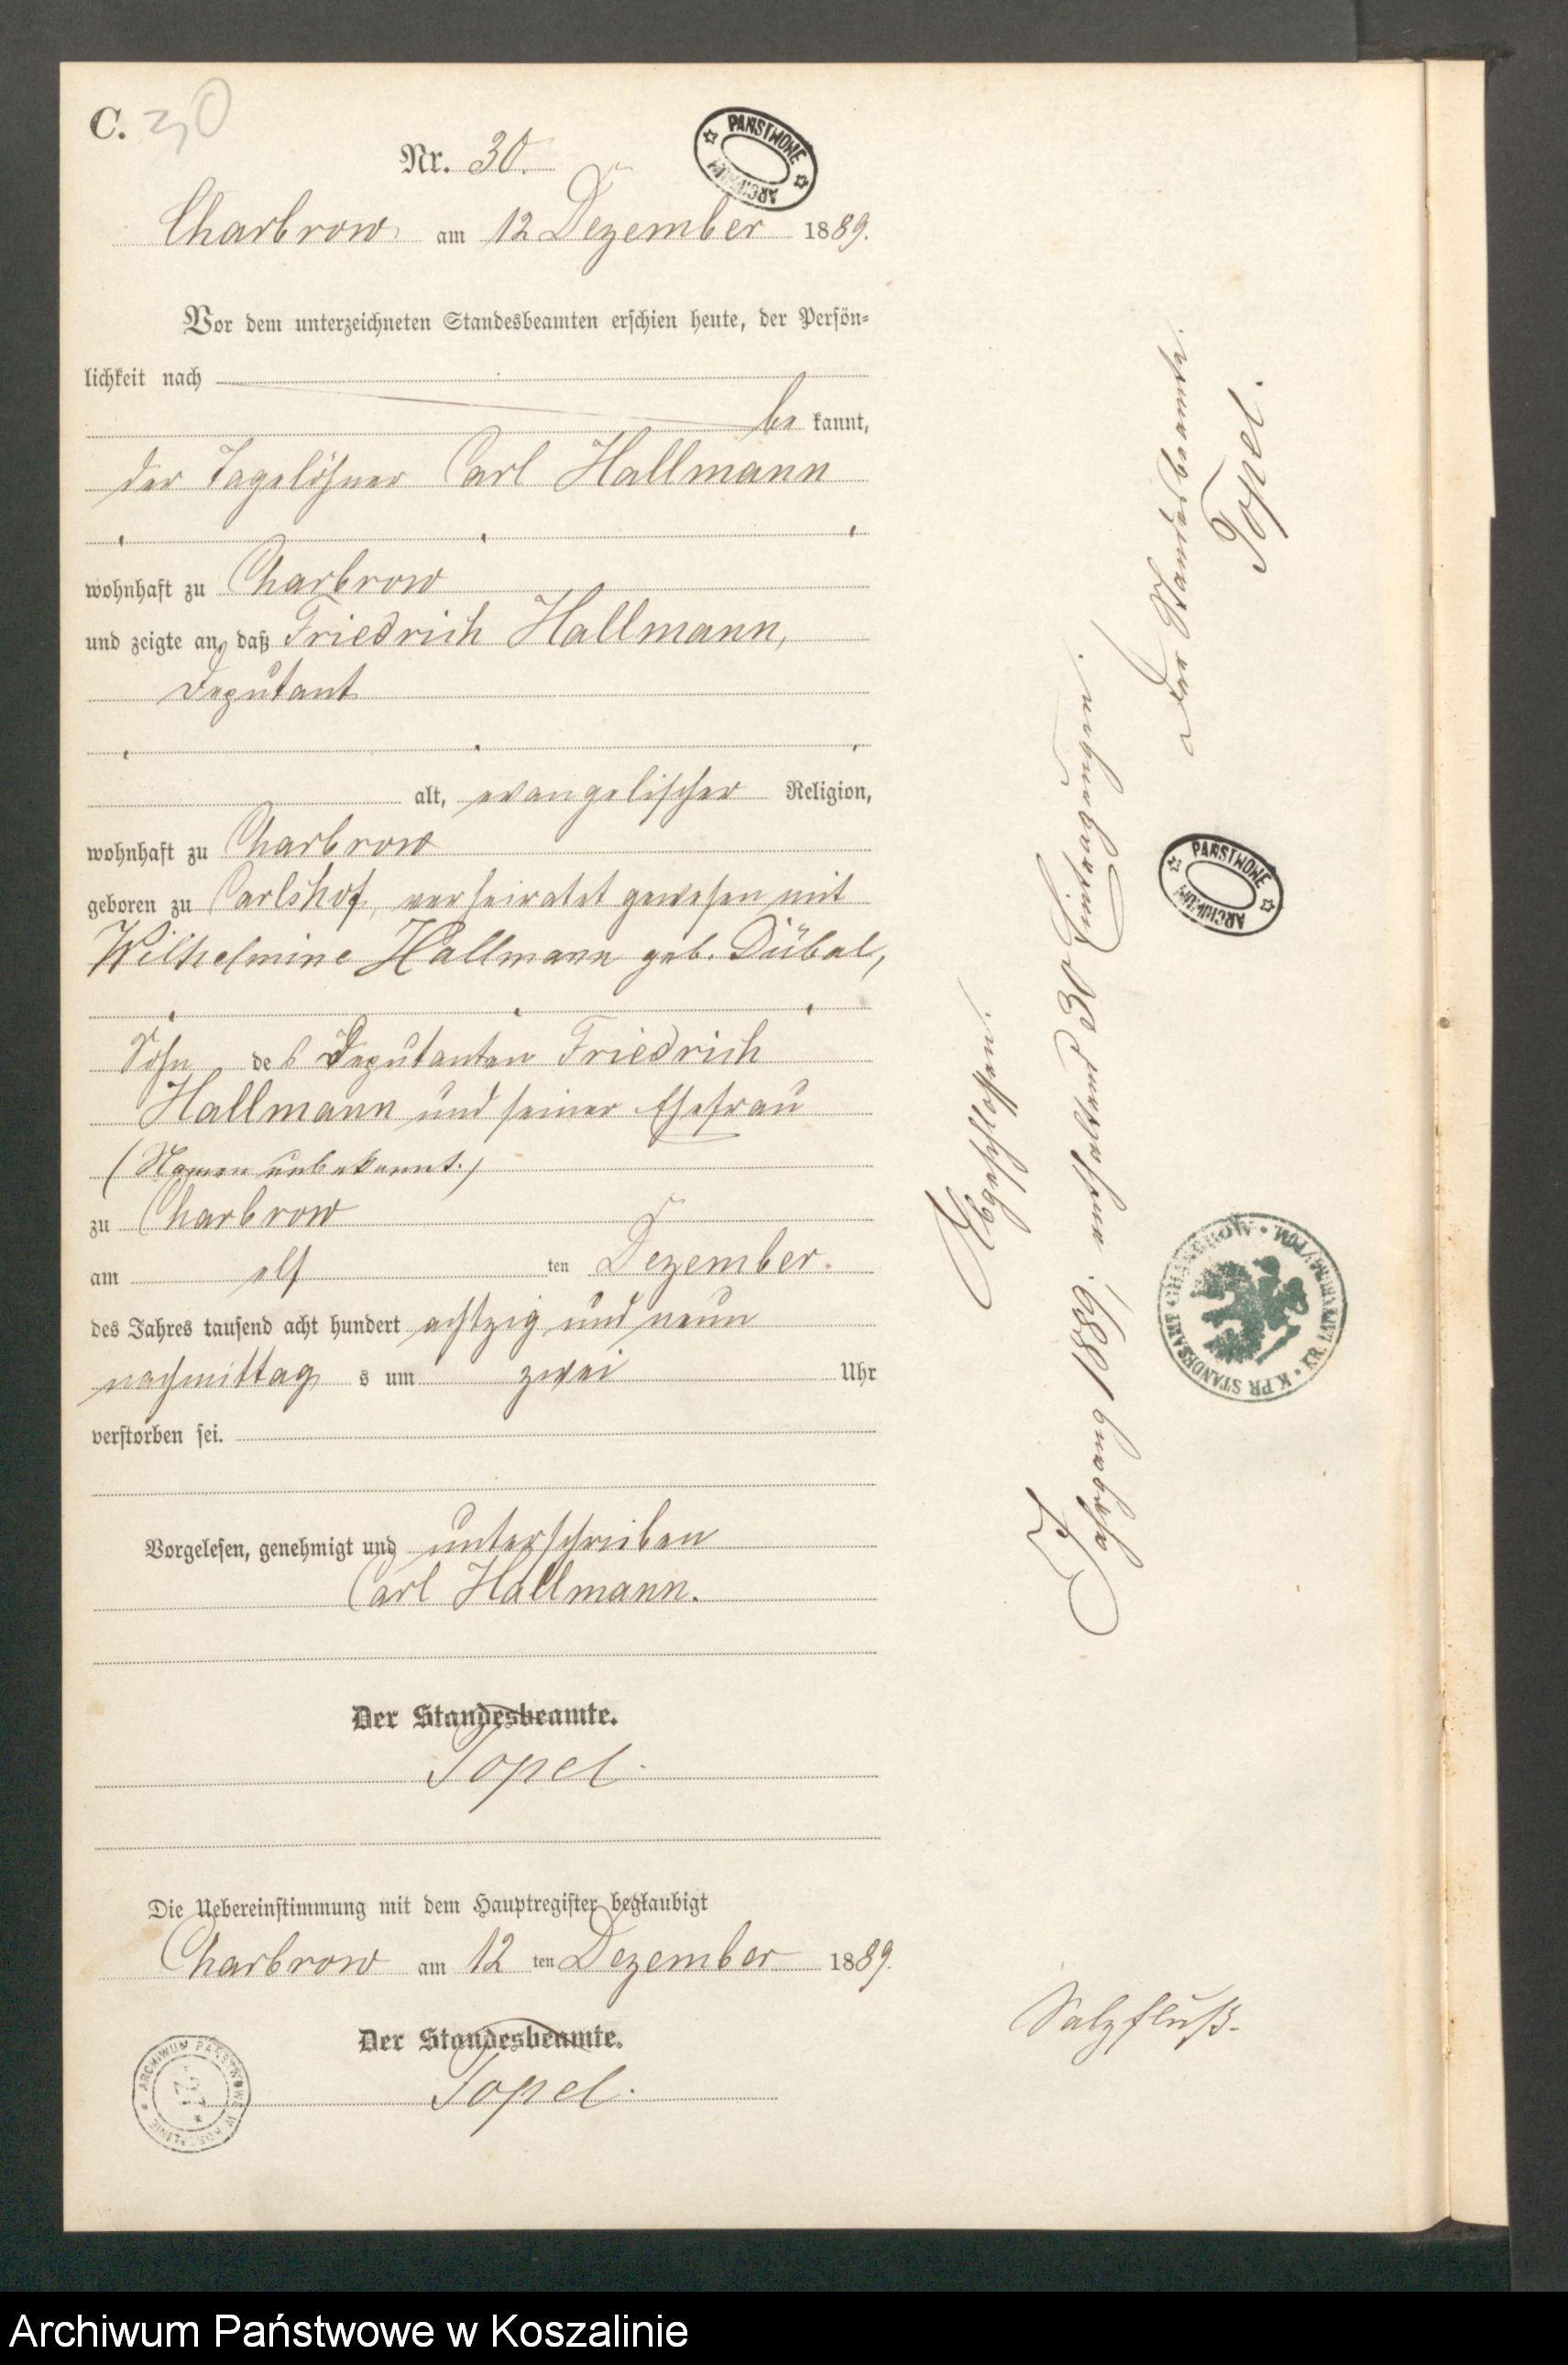 C. 30
Nr. 30.
PAŃSTWOWE ARCHIWUM
Charbrow am 12 Dezember 1889.
Vor dem unterzeichneten Standesbeamten erschien heute, der Persön-
lichkeit nach
be kannt,
der Tagelöhner Carl Hallmann
wohnhaft zu Charbrow
und zeigte an, daß Friedrich Hallmann,
Deputant
alt, evangelischer Religion,
wohnhaft zu Charbrow
geboren zu Carlshof, verheiratet gewesen mit
Wilhelmine Hallmann geb. Dübel,
Sohn des Deputanten Friedrich
Hallmann und seiner Ehefrau
(Namen unbekannt.)
zu Charbrow
am elf ten Dezember.
des Jahres tausend acht hundert achtzig und neun
nachmittag s um zwei Uhr
verstorben sei.
Vorgelesen, genehmigt und unterschrieben
Carl Hallmann.
Der Standesbeamte.
Topel.
Die Uebereinstimmung mit dem Hauptregister beglaubigt
Charbrow am 12 ten Dezember 1889.
Der Standesbeamte.
Topel.
ARCHIWUM PAŃSTWOWE W KOSZALINIE
Abgeschlossen.
Jahrgang 1889, enthaltend 30 Eintragungen.
Der Standesbeamte.
Topel.
PAŃSTWOWE ARCHIWUM
K. PR. STANDESAMT CHARBROW • KR. LAUENBURG/POM.
Salzfluß.
Archiwum Państwowe w Koszalinie